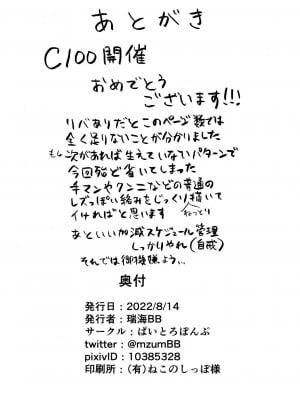 あとがき
C100開催
おめでとう
ございます!!!
リバありだとこのページ数では
全く足りないことが分かりました
もし次があれば生えていないパターンで
今回殆ど省いてしまった
手マンやクンニなどの普通の
レズっぽい絡みをじっくり描いて
ねっとり
イければと思います
あといい加減スケジュール管理
しっかりやれ(自戒)
それでは御機嫌よう、、
奥付
発行日：2022/8/14
発行者：瑞海BB
サークル：ぱいとろぼんぷ
twitter：@mzumBB
pixivID：10385328
印刷所：(有)ねこのしっぽ様